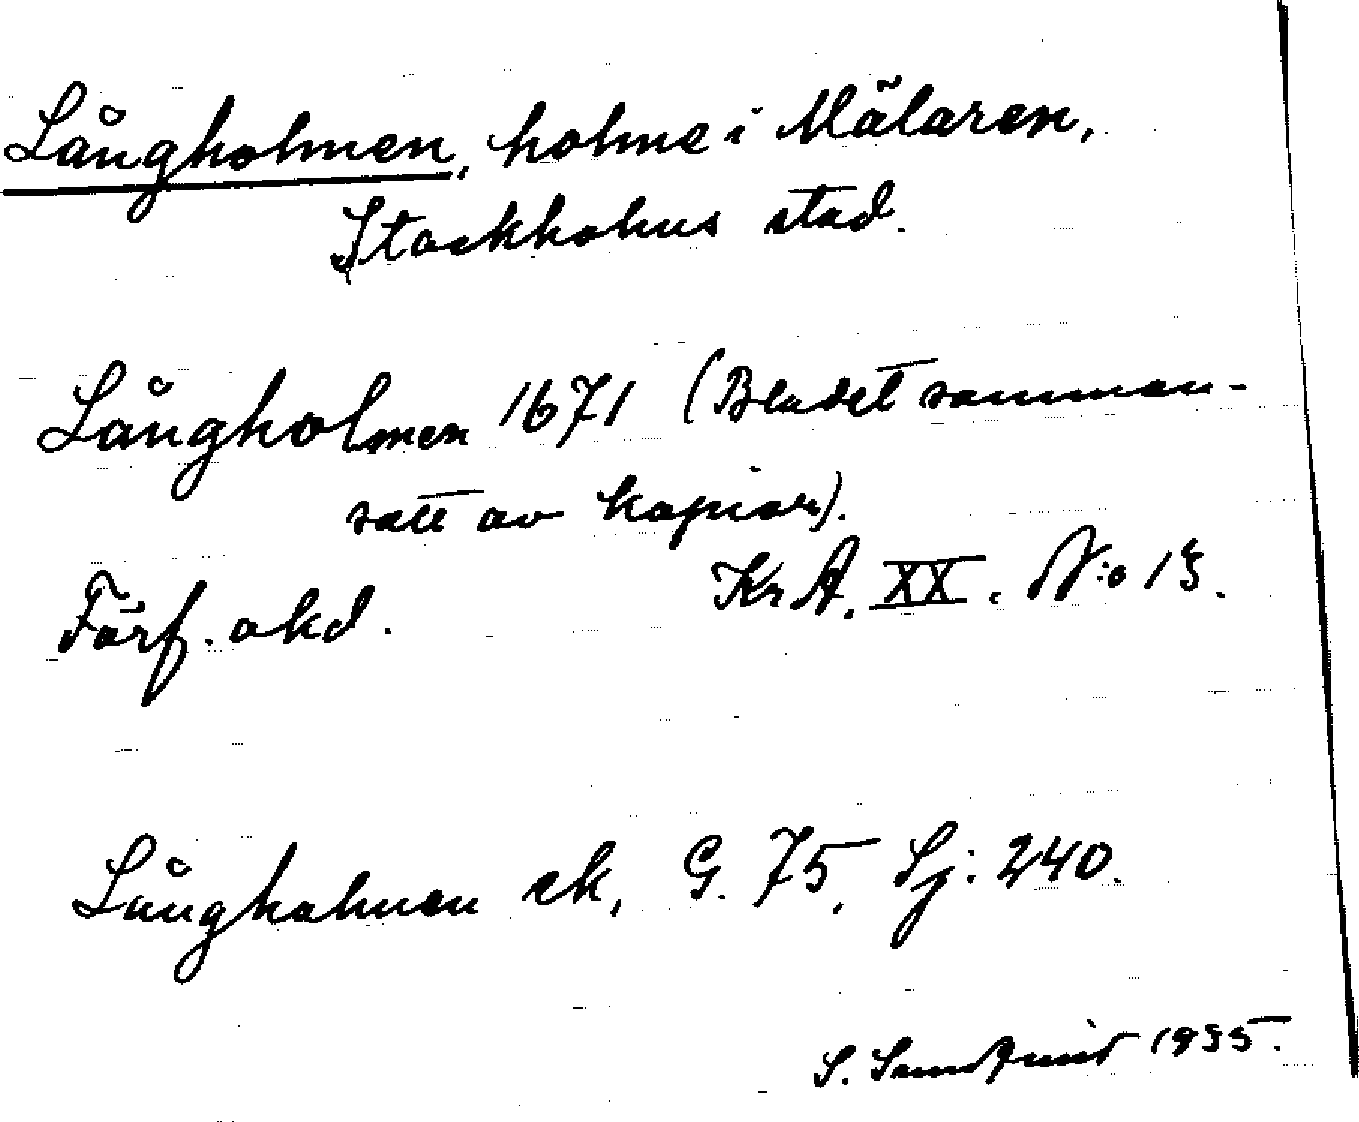 Långholmen, holme i Mälaren,
Stockholms stad.
Långholmen 1671 (Bladet samman-
satt av kopior).
Förf. okd. KrA. XX. N:o 13.
Långholmen ek, G. 75, Sj: 240.
S. Sandquist 1935.